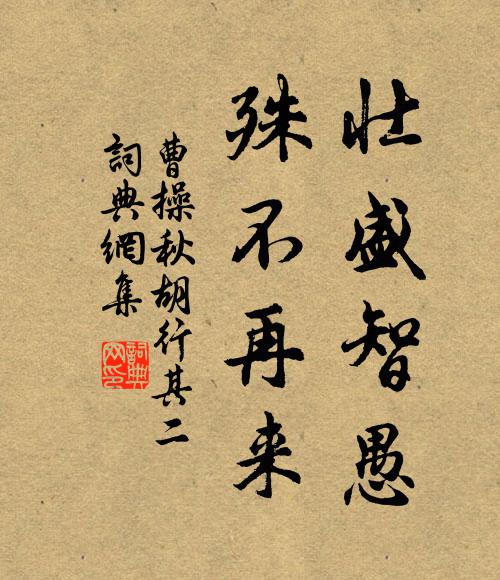 壮盛智愚
殊不再来
曹操秋胡行其二
詞典網集
詞典
网印